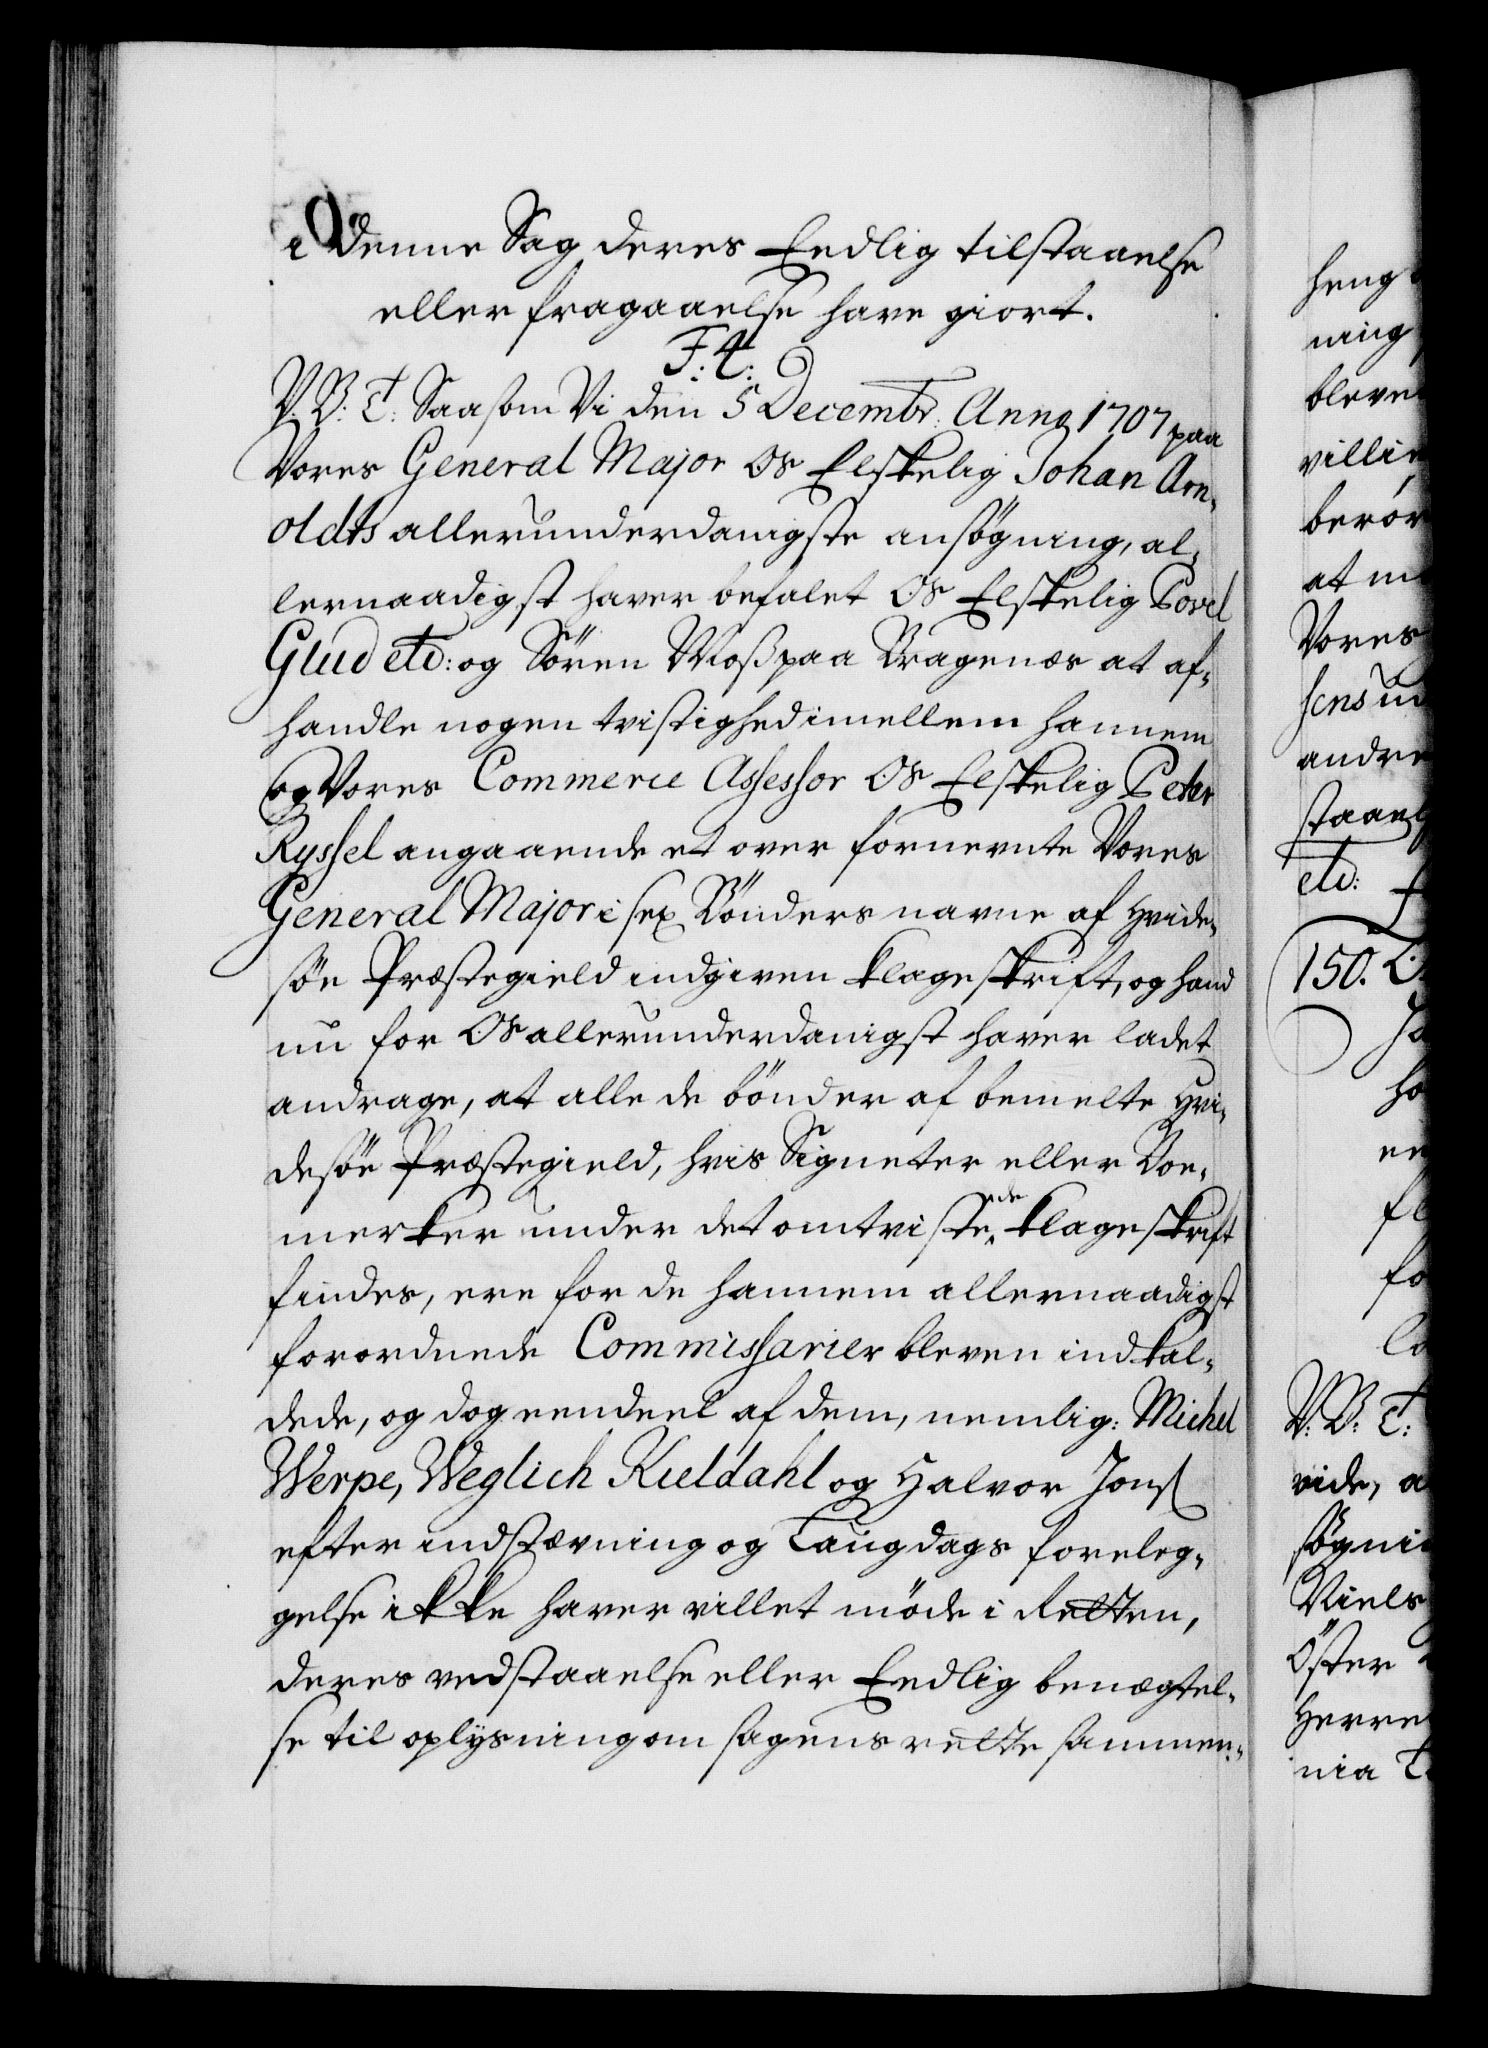 i denne Sag deres Eedlig tilstaaelse
eller fragaaelse have giort.
F: 4:
V. G: T: Saasom Vi den 5 Decembr. Anno 1707 paa
Vores General Major Os Elskelig Johan Arn-
oldts allerunderdanigste ansøgning, al-
lernaadigst haver befalet Os Elskelig Povel
Glud etc: og Søren Moß paa Bragenæs at af-
handle nogen tvistighed imellem hannem
og Vores Commerce Assessor Os Elskelig Peter
Ryssel angaaende et over fornevnte Vores
General Major i sex Bønders navne af Hvide-
søe Præstegield indgiven klageskrift, og hand
nu for Os allerunderdanigst haver ladet
andrage, at alle de bønder af bemelte Hvi-
desøe Præstegield, hvis Signeter eller Boe-
merker under det omtvistede klageskrift
findes, ere for de hannem allernaadigst
forordnede Commissarier bleven indkal-
dede, og dog eendeel af dem, nemlig: Michel
Werpe, Weglich Kieldahl og Halvor Jons
efter indstævning og Laugdags foreleg-
gelse ikke haver villet møde i Retten,
deres vedstaaelse eller Eedlig benægtel-
se til oplysning om sagens rette sammen-
heng
ning
bleve
villi
berør
at
Vores
hens
andre
staae
etc:
150.
V: G: T:
vide, a
søgni
Niels
Øster
Herre
nia